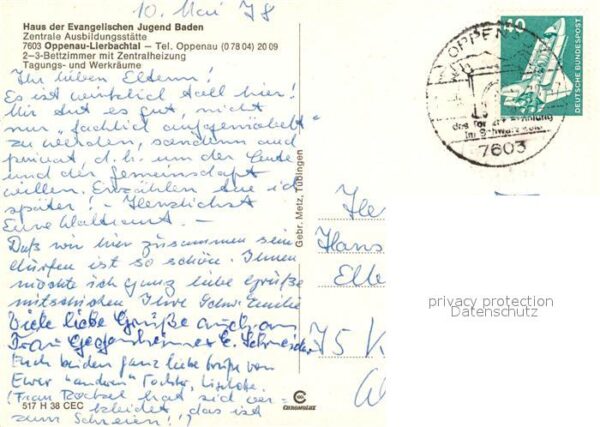 10. Mai 78
Haus der Evangelischen Jugend Baden
Zentrale Ausbildungsstätte
7603 Oppenau-Lierbachtal – Tel. Oppenau (0 78 04) 20 09
2–3-Bettzimmer mit Zentralheizung
Tagungs- und Werkräume
Ihr lieben Eltern!
Es ist wirklich toll hier!
Mir tut es gut, nicht
nur "fachlich aufgemöbelt"
zu werden, sondern auch
privat, d. h. um der Leute
und der Gemeinschaft
willen. Erzählen tue ich
später! – Herzlichst
Eure Waltraut. –
Daß wir hier zusammen sein
dürfen ist so schön. Ihnen
möchte ich ganz liebe Grüße
mitschicken Ihre Schw. Emilie
Viele liebe Grüße auch an
Frau Gegenheimer E. Schneider
Euch beiden ganz liebe Grüße von
Eurer "anderen" Tochter, Liselotte.
(Frau Raetsel hat sich ver-
kleidet, das ist
zum Schreien!")
517 H 38 CEC
CHROMOLUX
Gebr. Metz, Tübingen
40
DEUTSCHE BUNDESPOST
OPPEN
das Tor zur Erholung
im Schwarzwald
7603
Hans
75 K
privacy protection
Datenschutz